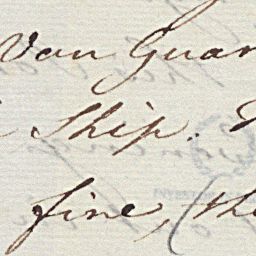 Van Guar
Ship.
fine, (the